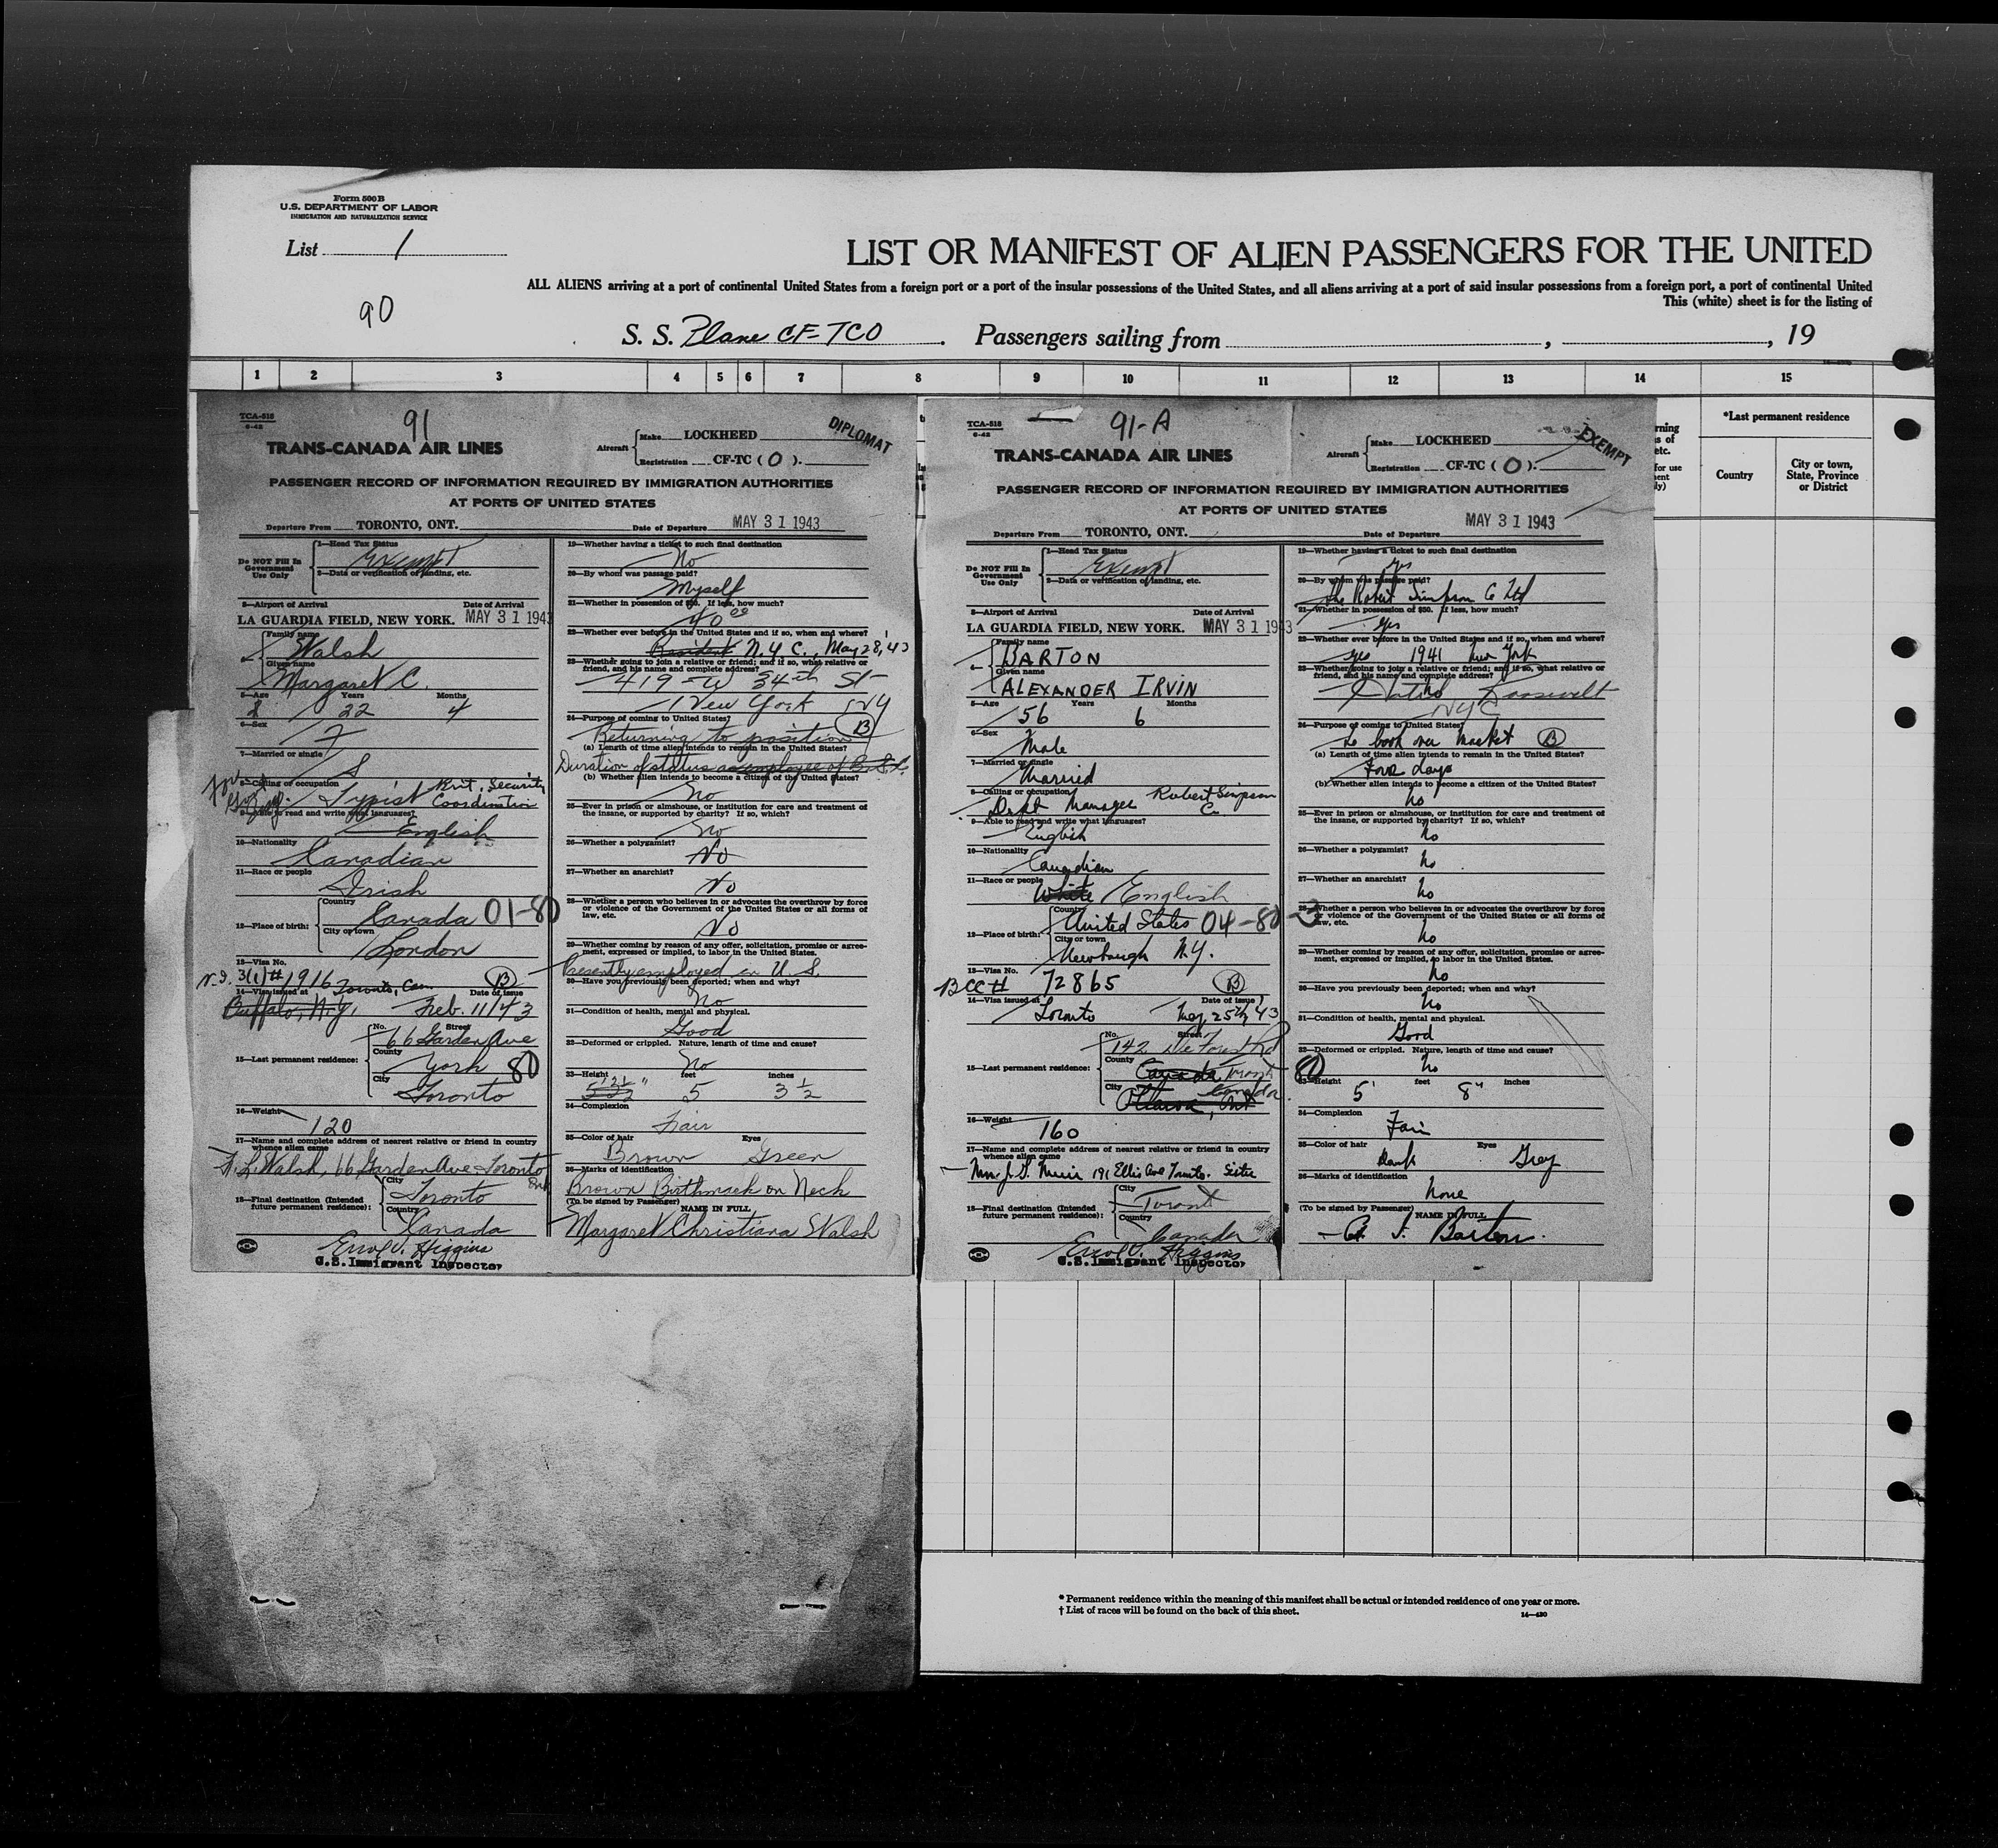 Form 500 B
U.S. DEPARTMENT OF LABOR
IMMIGRATION AND NATURALIZATION SERVICE
List 1
90
LIST OR MANIFEST OF ALIEN PASSENGERS FOR THE UNITED
ALL ALIENS arriving at a port of continental United States from a foreign port or a port of the insular possessions of the United States, and all aliens arriving at a port of said insular possessions from a foreign port, a port of continental United
This (white) sheet is for the listing of
S. S. Plane CF-TCO. Passengers sailing from , , 19
1 2 3 4 5 6 7 8 9 10 11 12 13 14 15
*Last permanent residence
Country
City or town, State, Province or District
TCA-518
6-42
91
DIPLOMAT
TRANS-CANADA AIR LINES
Aircraft Make LOCKHEED
Registration CF-TC (O).
PASSENGER RECORD OF INFORMATION REQUIRED BY IMMIGRATION AUTHORITIES
AT PORTS OF UNITED STATES
Departure From TORONTO, ONT. Date of Departure MAY 31 1943
Do NOT Fill In Government Use Only
1—Head Tax Status
Exempt
2—Data or verification of landing, etc.
3—Airport of Arrival Date of Arrival
LA GUARDIA FIELD, NEW YORK. MAY 31 1943
4— Family name
Walsh
Given name
Margaret C.
5—Age Years Months
22 4
6—Sex
F
7—Married or single
S
8—Calling or occupation
Typist Brit. Security Coordination
9—Able to read and write what languages?
English
10—Nationality
Canadian
11—Race or people
Irish
12—Place of birth: Country
Canada 01-80
City or town
London
13—Visa No.
3(1) # 1916 Toronto, Can. B
14—Visa issued at Date of issue
Buffalo, N.Y. Feb. 11/43
15—Last permanent residence: No. Street
66 Garden Ave
County
York 80
City
Toronto
16—Weight
120
17—Name and complete address of nearest relative or friend in country whence alien came
F. L. Walsh, 66 Garden Ave Toronto Ont
18—Final destination (Intended future permanent residence): City
Toronto
Country
Canada
Errol V. Higgins
U.S. Immigrant Inspector
19—Whether having a ticket to such final destination
No
20—By whom was passage paid?
Myself
21—Whether in possession of $50. If less, how much?
40 00
22—Whether ever before in the United States and if so, when and where?
Resident N.Y.C., May 28, 43
23—Whether going to join a relative or friend; and if so, what relative or friend, and his name and complete address?
419-W 34th St-
New York NY
24—Purpose of coming to United States?
Returning to position B
(a) Length of time alien intends to remain in the United States?
Duration of status as employee of B.S.C.
(b) Whether alien intends to become a citizen of the United States?
No
25—Ever in prison or almshouse, or institution for care and treatment of the insane, or supported by charity? If so, which?
No
26—Whether a polygamist?
No
27—Whether an anarchist?
No
28—Whether a person who believes in or advocates the overthrow by force or violence of the Government of the United States or all forms of law, etc.
No
29—Whether coming by reason of any offer, solicitation, promise or agreement, expressed or implied, to labor in the United States.
Presently employed in U.S.
30—Have you previously been deported; when and why?
No
31—Condition of health, mental and physical.
Good
32—Deformed or crippled. Nature, length of time and cause?
No
33—Height feet inches
5 3 1/2
34—Complexion
Fair
35—Color of hair Eyes
Brown Green
36—Marks of identification
Brown Birthmark on Neck
(To be signed by Passenger) NAME IN FULL
Margaret Christiana Walsh
TCA-518
6-42
91-A
EXEMPT
TRANS-CANADA AIR LINES
Aircraft Make LOCKHEED
Registration CF-TC (O).
PASSENGER RECORD OF INFORMATION REQUIRED BY IMMIGRATION AUTHORITIES
AT PORTS OF UNITED STATES
Departure From TORONTO, ONT. Date of Departure MAY 31 1943
Do NOT Fill In Government Use Only
1—Head Tax Status
Exempt
2—Data or verification of landing, etc.
3—Airport of Arrival Date of Arrival
LA GUARDIA FIELD, NEW YORK. MAY 31 1943
4— Family name
BARTON
Given name
ALEXANDER IRVIN
5—Age Years Months
56 6
6—Sex
Male
7—Married or single
Married
8—Calling or occupation
Dept Manager Robert Simpson Co.
9—Able to read and write what languages?
English
10—Nationality
Canadian
11—Race or people
White English
12—Place of birth: Country
United States 04-80-3
City or town
Newburgh N.Y.
13—Visa No.
BCC# 72865 B
14—Visa issued at Date of issue
Toronto May 25th/43
15—Last permanent residence: No. Street
142
County
Canada Toronto
City
Ottawa, Ont Canada
80
16—Weight
160
17—Name and complete address of nearest relative or friend in country whence alien came
Mrs. J. G. Muir 191 Ellis Ave Toronto. Sister
18—Final destination (Intended future permanent residence): City
Toronto
Country
Canada
Errol V. Higgins
U.S. Immigrant Inspector
19—Whether having a ticket to such final destination
Yes
20—By whom was passage paid?
The Robert Simpson Co Ltd
21—Whether in possession of $50. If less, how much?
Yes
22—Whether ever before in the United States and if so, when and where?
Yes 1941 New York
23—Whether going to join a relative or friend; and if so, what relative or friend, and his name and complete address?
No
Hotel Roosevelt
NYC
24—Purpose of coming to United States?
To look over market B
(a) Length of time alien intends to remain in the United States?
Four days
(b) Whether alien intends to become a citizen of the United States?
No
25—Ever in prison or almshouse, or institution for care and treatment of the insane, or supported by charity? If so, which?
No
26—Whether a polygamist?
No
27—Whether an anarchist?
No
28—Whether a person who believes in or advocates the overthrow by force or violence of the Government of the United States or all forms of law, etc.
No
29—Whether coming by reason of any offer, solicitation, promise or agreement, expressed or implied, to labor in the United States.
No
30—Have you previously been deported; when and why?
No
31—Condition of health, mental and physical.
Good
32—Deformed or crippled. Nature, length of time and cause?
No
33—Height feet inches
5' 8"
34—Complexion
Fair
35—Color of hair Eyes
Dark Grey
36—Marks of identification
None
(To be signed by Passenger) NAME IN FULL
A. I. Barton.
* Permanent residence within the meaning of this manifest shall be actual or intended residence of one year or more.
† List of races will be found on the back of this sheet.
14—430